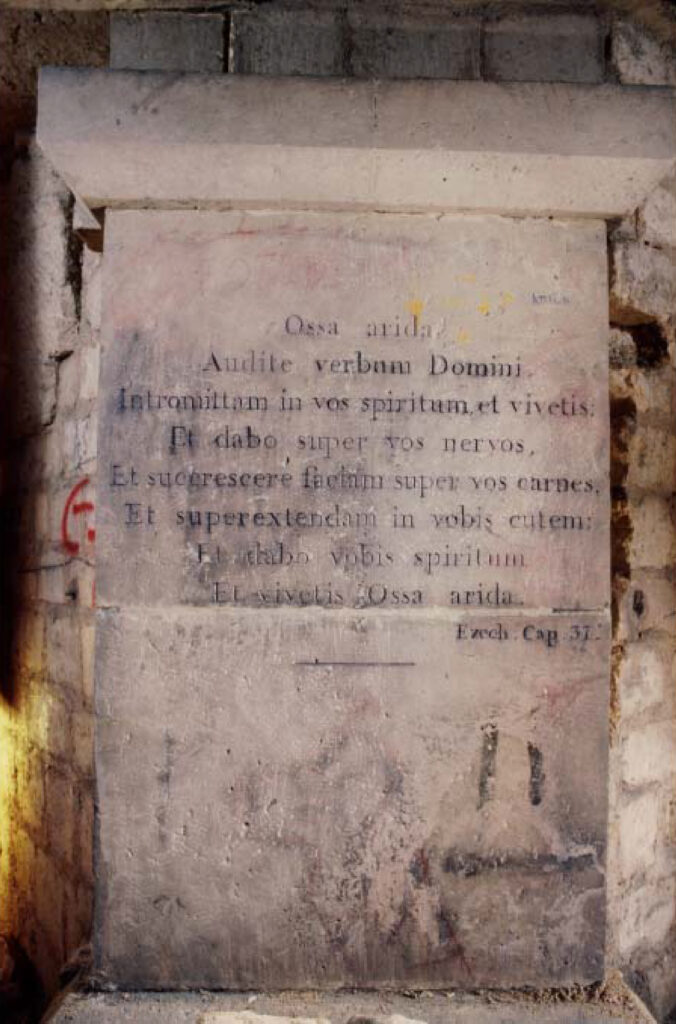 Ossa arida
Audite verbum Domini.
Intromittam in vos spiritum, et vivetis:
Et dabo super vos nervos,
Et succrescere faciam super vos carnes,
Et superextendam in vobis cutem:
Et dabo vobis spiritum
Et vivetis Ossa arida.
Ezech. Cap. 37.